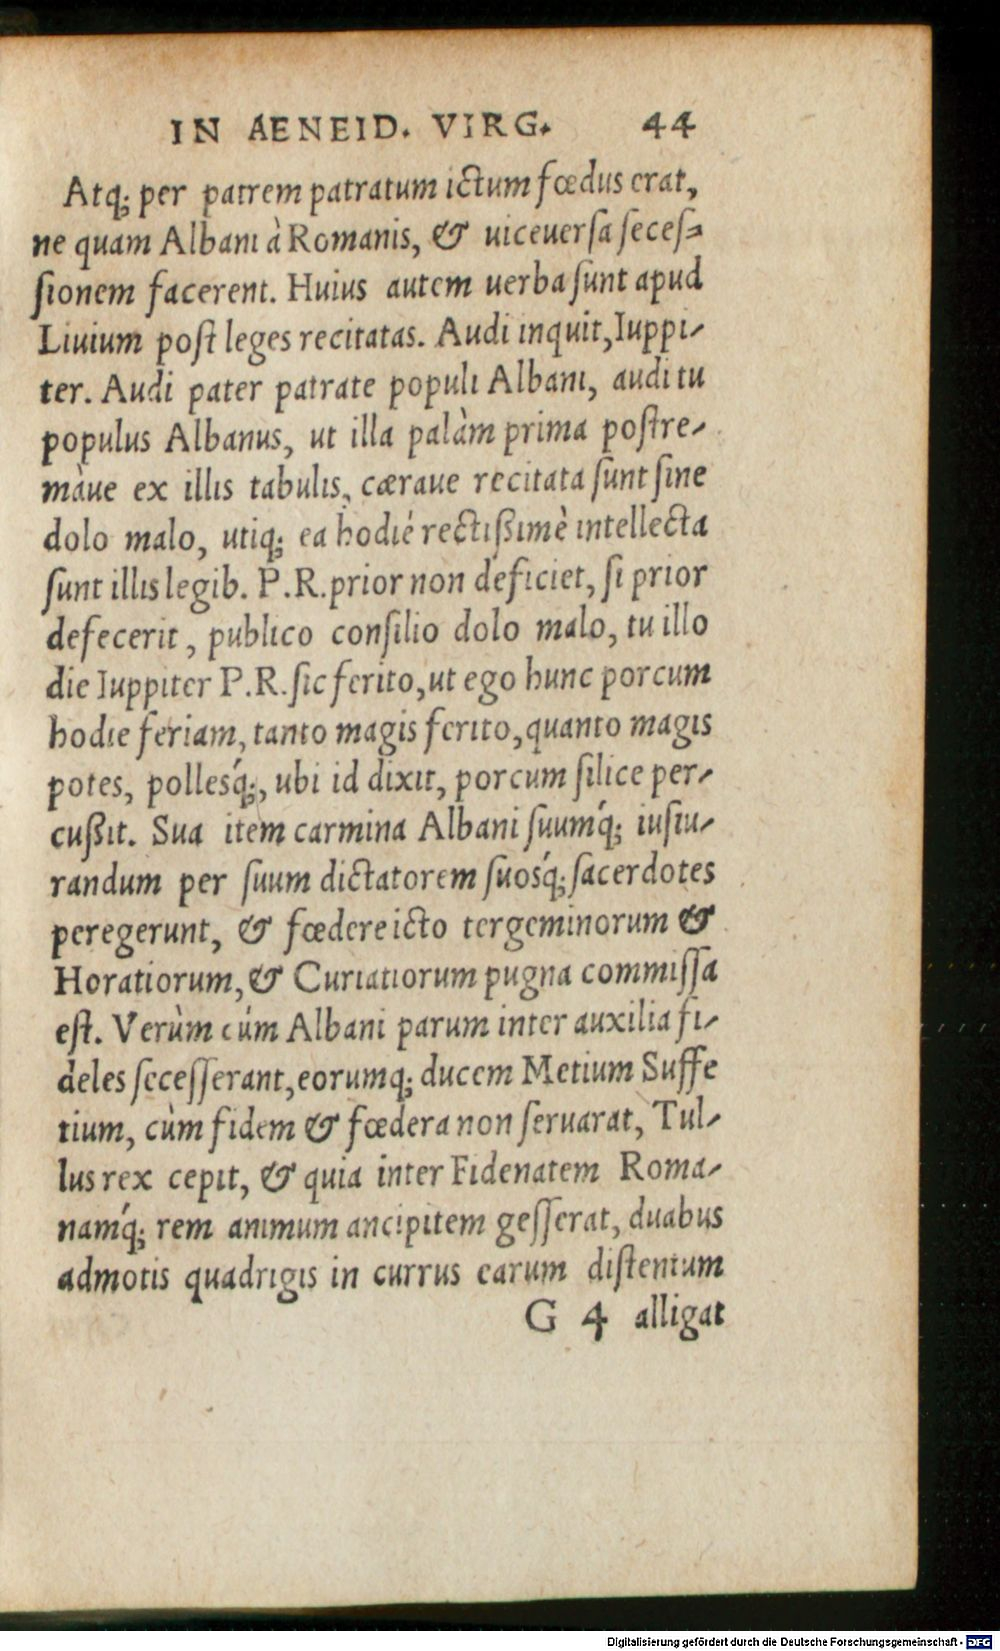 IN AENEID. VIRG. 44
Atq; per patrem patratum ictum fœdus erat,
ne quam Albani à Romanis, & uiceuersa seces⸗
sionem facerent. Huius autem uerba sunt apud
Liuium post leges recitatas. Audi inquit, Iuppi-
ter. Audi pater patrate populi Albani, audi tu
populus Albanus, ut illa palàm prima postre-
màue ex illis tabulis, cæraue recitata sunt sine
dolo malo, utiq; ea hodié rectißimè intellecta
sunt illis legib. P.R. prior non deficiet, si prior
defecerit, publico consilio dolo malo, tu illo
die Iuppiter P.R. sic ferito, ut ego hunc porcum
hodie feriam, tanto magis ferito, quanto magis
potes, pollesq́;, ubi id dixit, porcum silice per-
cußit. Sua item carmina Albani suumq́; iusiu-
randum per suum dictatorem suosq́; sacerdotes
peregerunt, & fœdere icto tergeminorum &
Horatiorum, & Curiatiorum pugna commissa
est. Verùm cúm Albani parum inter auxilia fi-
deles secesserant, eorumq; ducem Metium Suffe
tium, cùm fidem & fœdera non seruarat, Tul-
lus rex cepit, & quia inter Fidenatem Roma-
namq́; rem animum ancipitem gesserat, duabus
admotis quadrigis in currus earum distentum
G 4 alligat
Digitalisierung gefördert durch die Deutsche Forschungsgemeinschaft - DFG